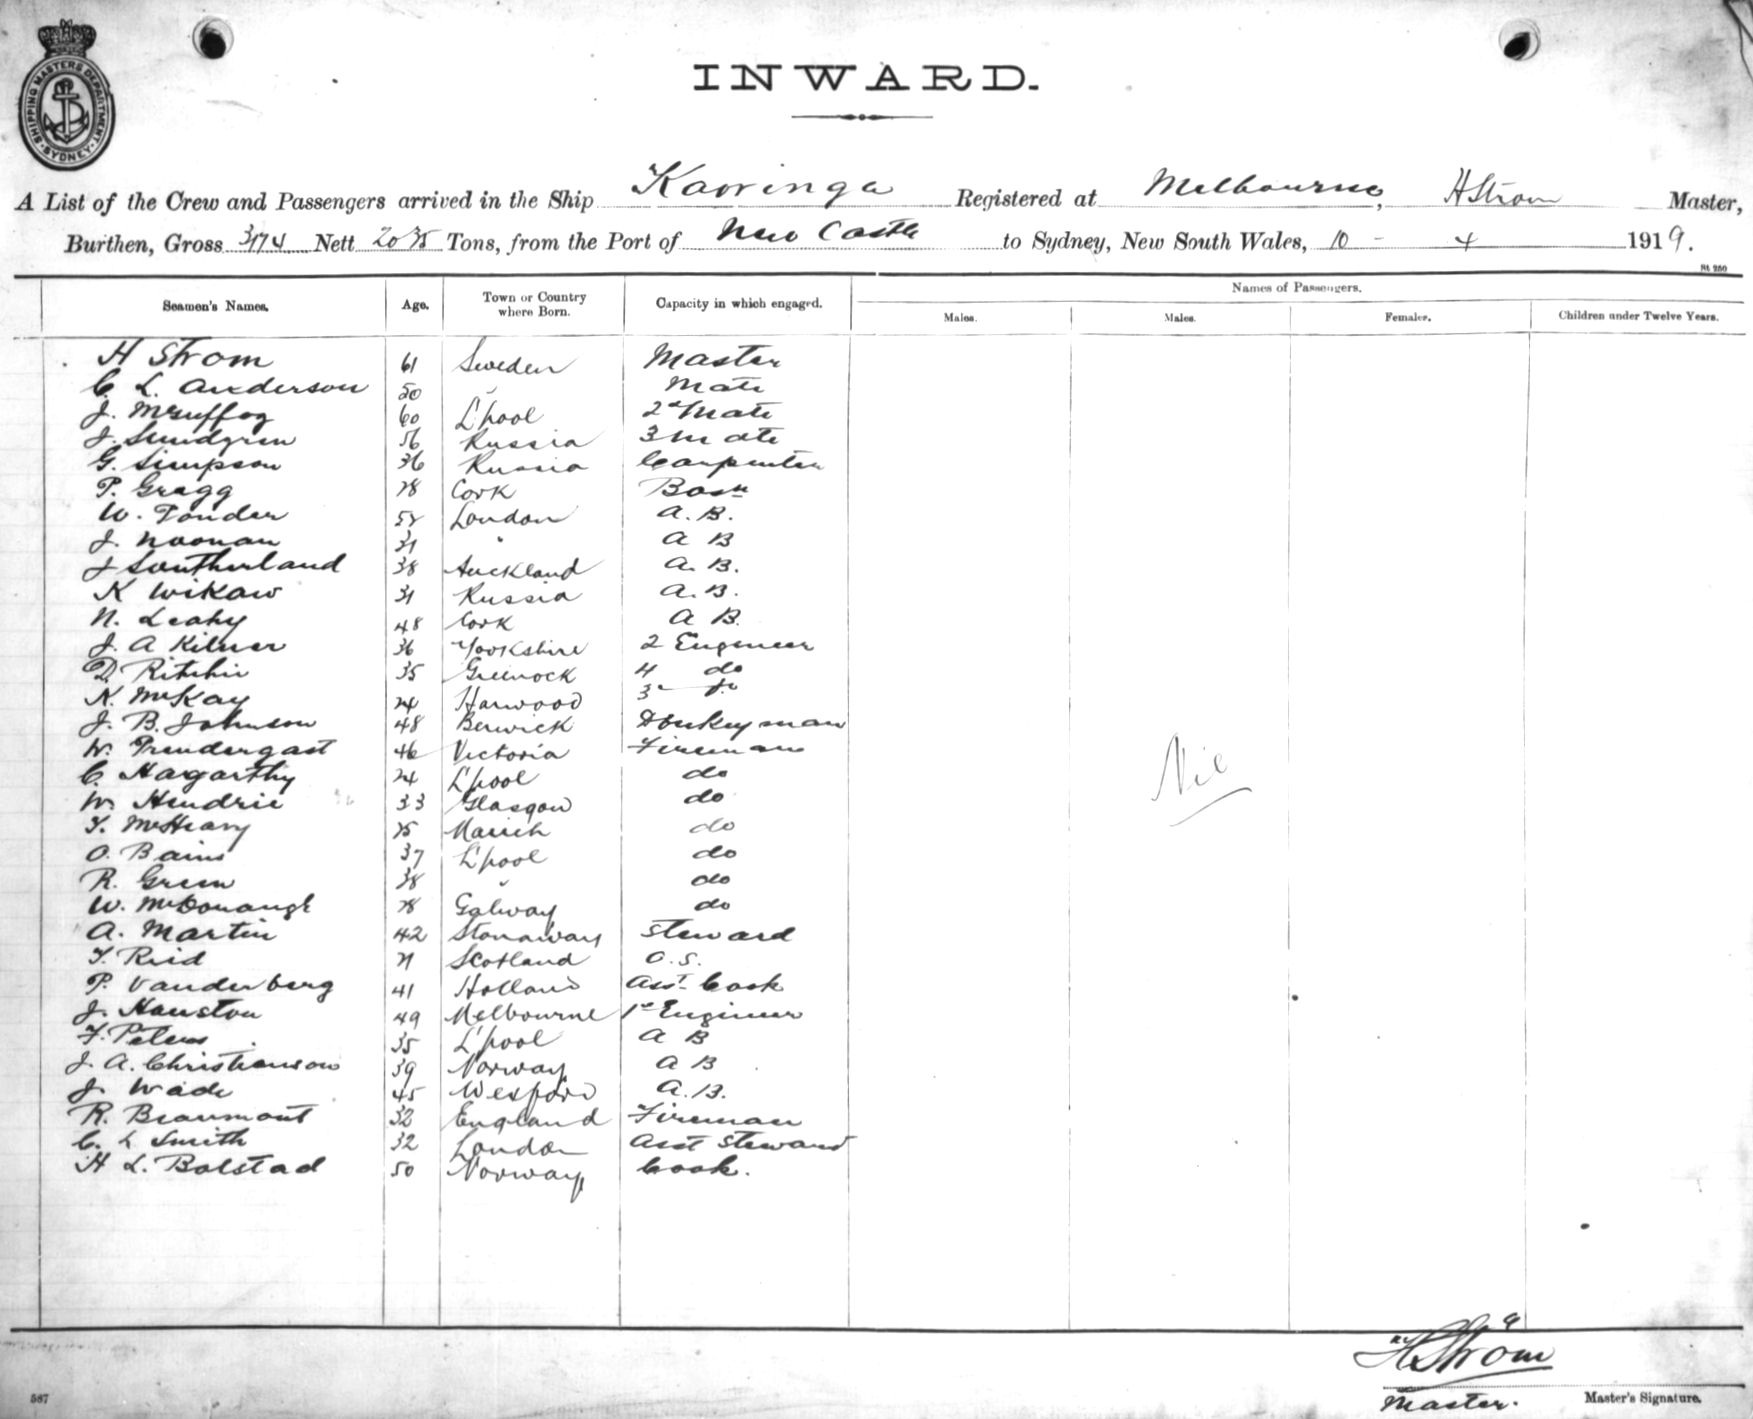 SHIPPING MASTERS DEPARTMENT. SYDNEY.
INWARD.
A List of the Crew and Passengers arrived in the Ship Kooringa Registered at Melbourne, H Strom Master,
Burthen, Gross 3174 Nett Tons, from the Port of New Castle to Sydney, New South Wales, 10 - 4 1919.
St 250
Seamen's Names. Age. Town or Country where Born. Capacity in which engaged. Names of Passengers.
Males. Males. Females. Children under Twelve Years.
H Strom 61 Sweden Master
C. L. Anderson 50 " Mate
J. 60 L'pool 2nd Mate
J. Sundgren 56 Russia 3 Mate
G. Simpson 36 Russia Carpenter
P. Gragg 28 Cork Bosn
W. Ponder London A.B.
J. Noonan 31 " A B
J Southerland 38 Auckland A.B.
K Wikaw 31 Russia A.B.
N. Leahy 48 Cork A B.
J. A Kilner 36 Yorkshire 2 Engineer
D. Ritchie 35 Greenock 4 do
K. McKay 24 Harwood 3rd do
J. B. Johnson 48 Berwick Donkeyman
W. Prendergast 46 Victoria Fireman
C. Hagarthy 24 L'pool do
W. Hendrie 33 Glasgow do
T. McHeary 25 do
O. Bains 37 L'pool do
R. Green 38 " do
W. McDonaugh 28 Galway do
A. Martin 42 Stonaway Steward
T. Reid 21 Scotland O.S.
P. Vanderberg 41 Holland Asst. Cook
J. Houston 49 Melbourne 1st Engineer
F. Peters 35 L'pool A B
J. A. Christianson 39 Norway A B
J. Wade 45 Wexford A.B.
R. Beaumont 32 England Fireman
C. L Smith 32 London Asst Steward
H L. Bolstad 50 Norway Cook.
Nil
H Strom
Master. Master's Signature.
587